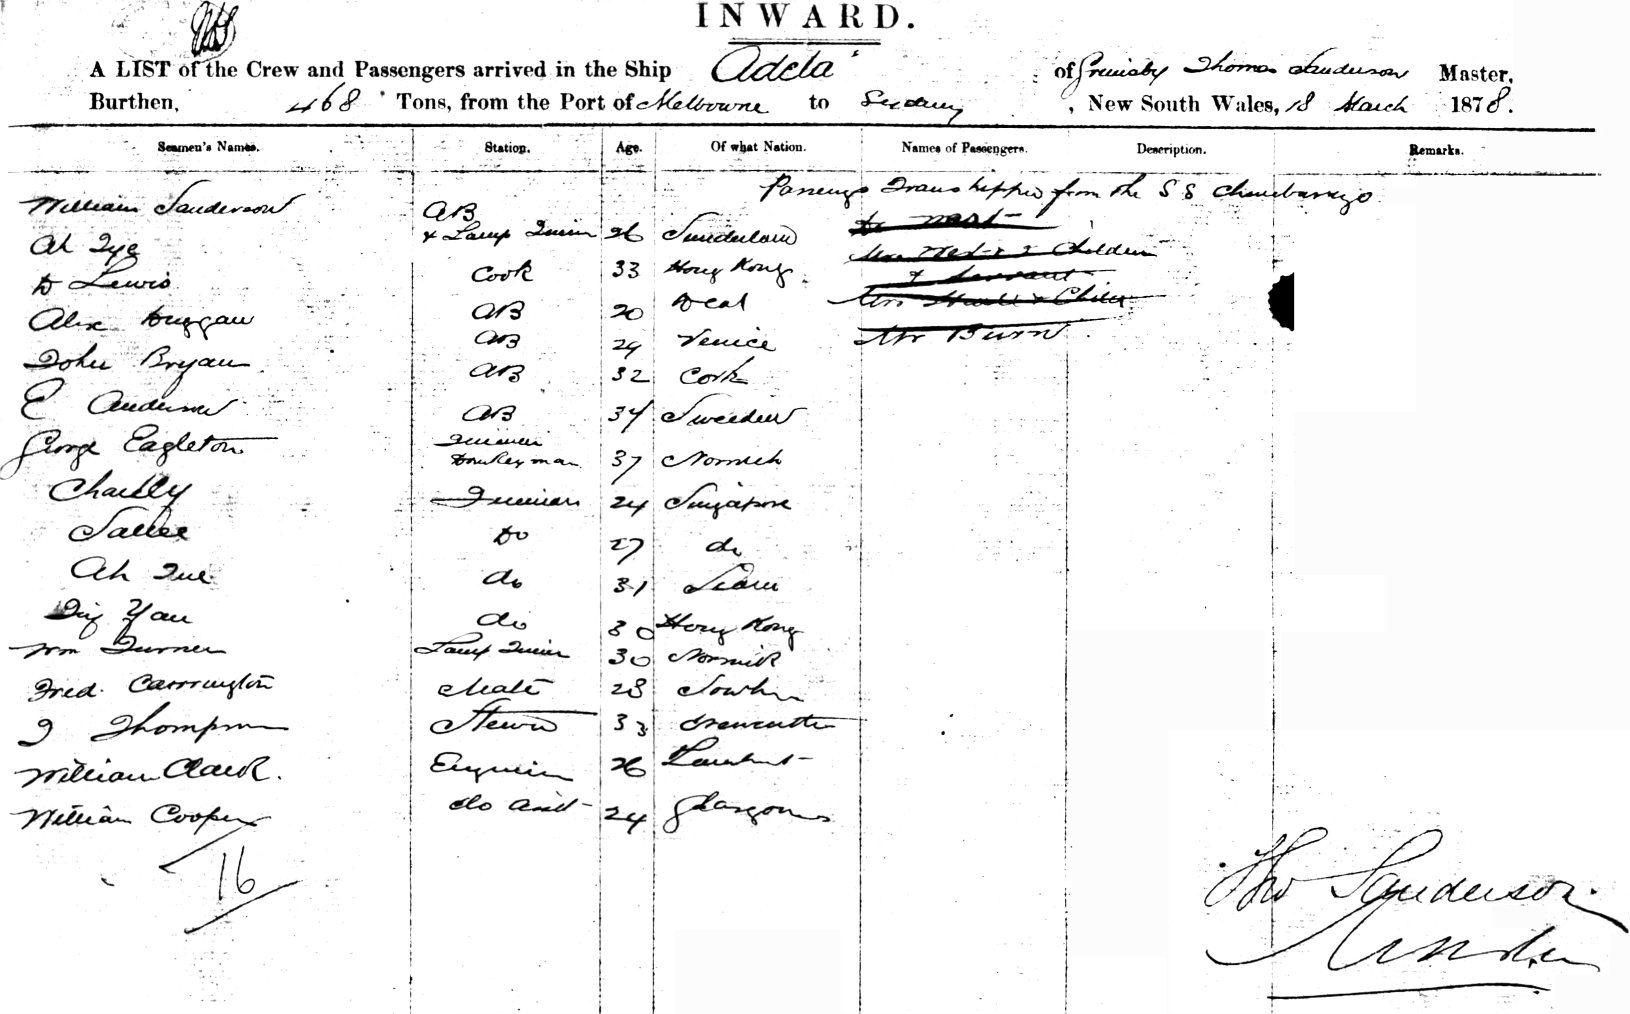 INWARD.
A LIST of the Crew and Passengers arrived in the Ship Adela of Grimsby Thomas Sanderson Master,
Burthen, 468 Tons, from the Port of Melbourne to Sydney, New South Wales, 18 March 1878.
Seamen's Names. Station. Age. Of what Nation. Names of Passengers. Description. Remarks.
Passengs Transhipped from the S S
William Sanderson AB
& Lamp Trimr 26 Sunderland
Ah Tye Cook 33 Hong Kong
D Lewis AB 20 Deal
Alex Duggan AB 29 Venice
Mr Burn
John Bryan AB 32 Cork
E Anderson AB 34 Sweeden
George Eagleton Fireman
Donkeyman 37 Norwich
Charlly Fireman 24 Singapore
Sallee Do 27 do
Ah do 31 Siam
Yau do 30 Hong Kong
Wm Turner Lamp Trimr 30 Norwich
Fred. Carrrington Mate 28
J Thompson Stewd 33 Newcastle
William Clark. Engineer 26
William Cooper do Asst 24 Glasgow
16
Tho Sanderson
Master